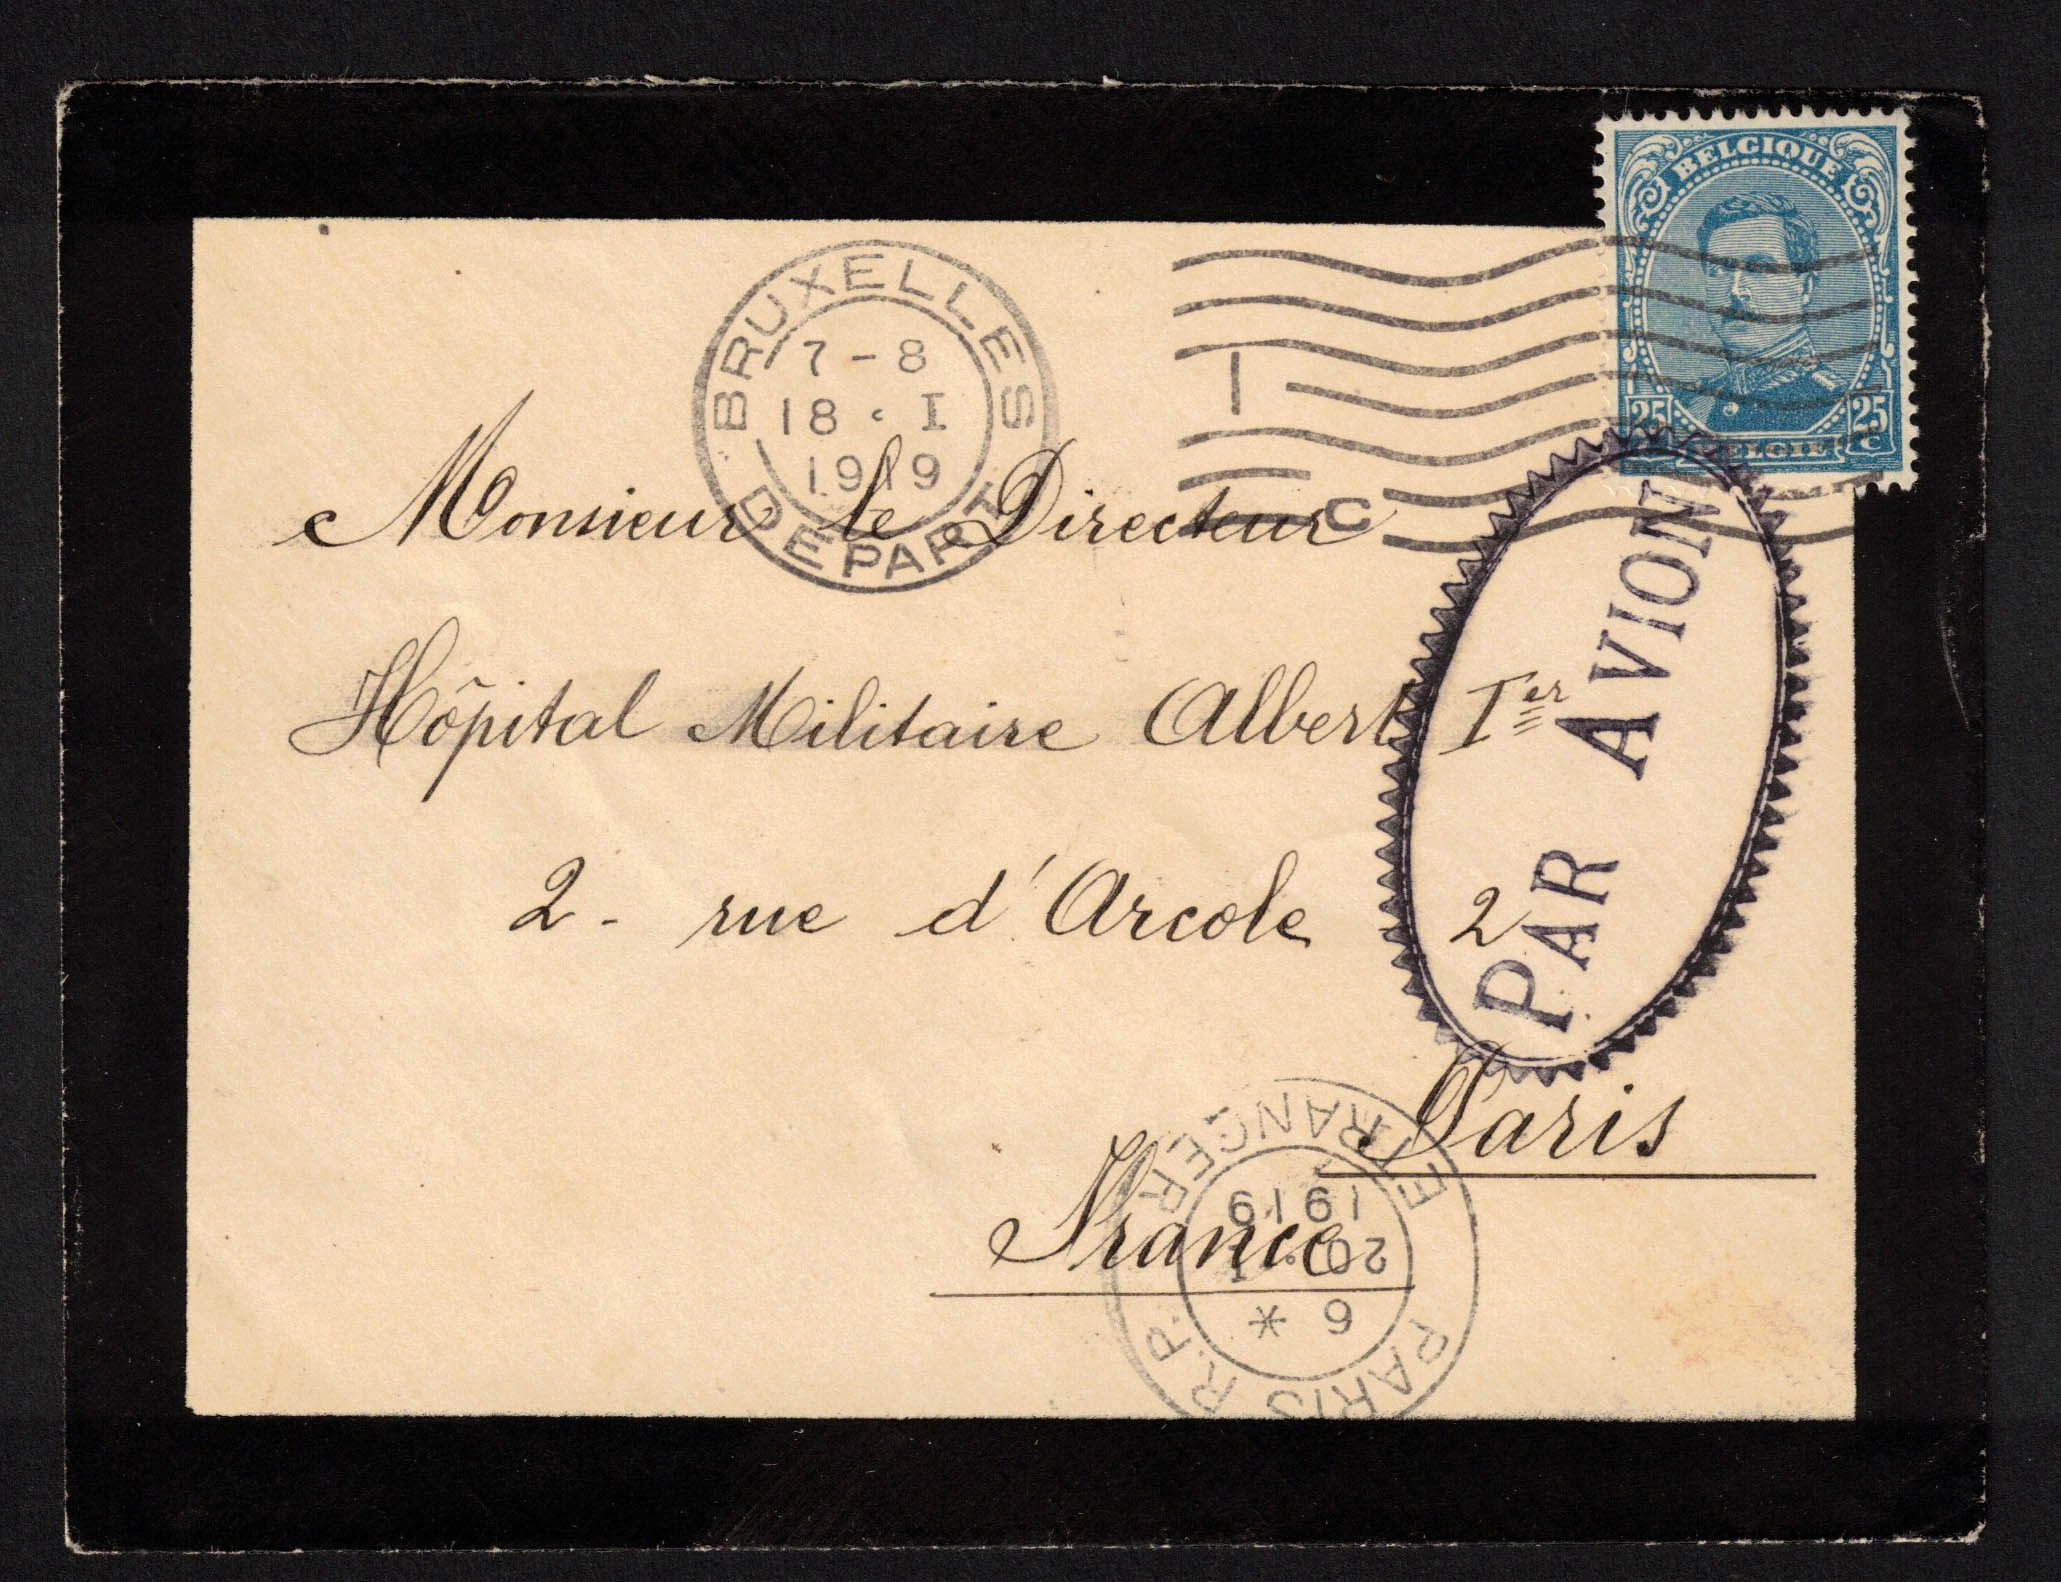 BELGIQUE
25 C 25 C
BELGIE
BRUXELLES
7-8
18 · I
1919
DEPART
I C
Monsieur le Directeur
Hôpital Militaire Albert Ier
2 - rue d'Arcole 2
PAR AVION
Paris
France
PARIS R.P.
6 *
20 · I
1919
ETRANGER